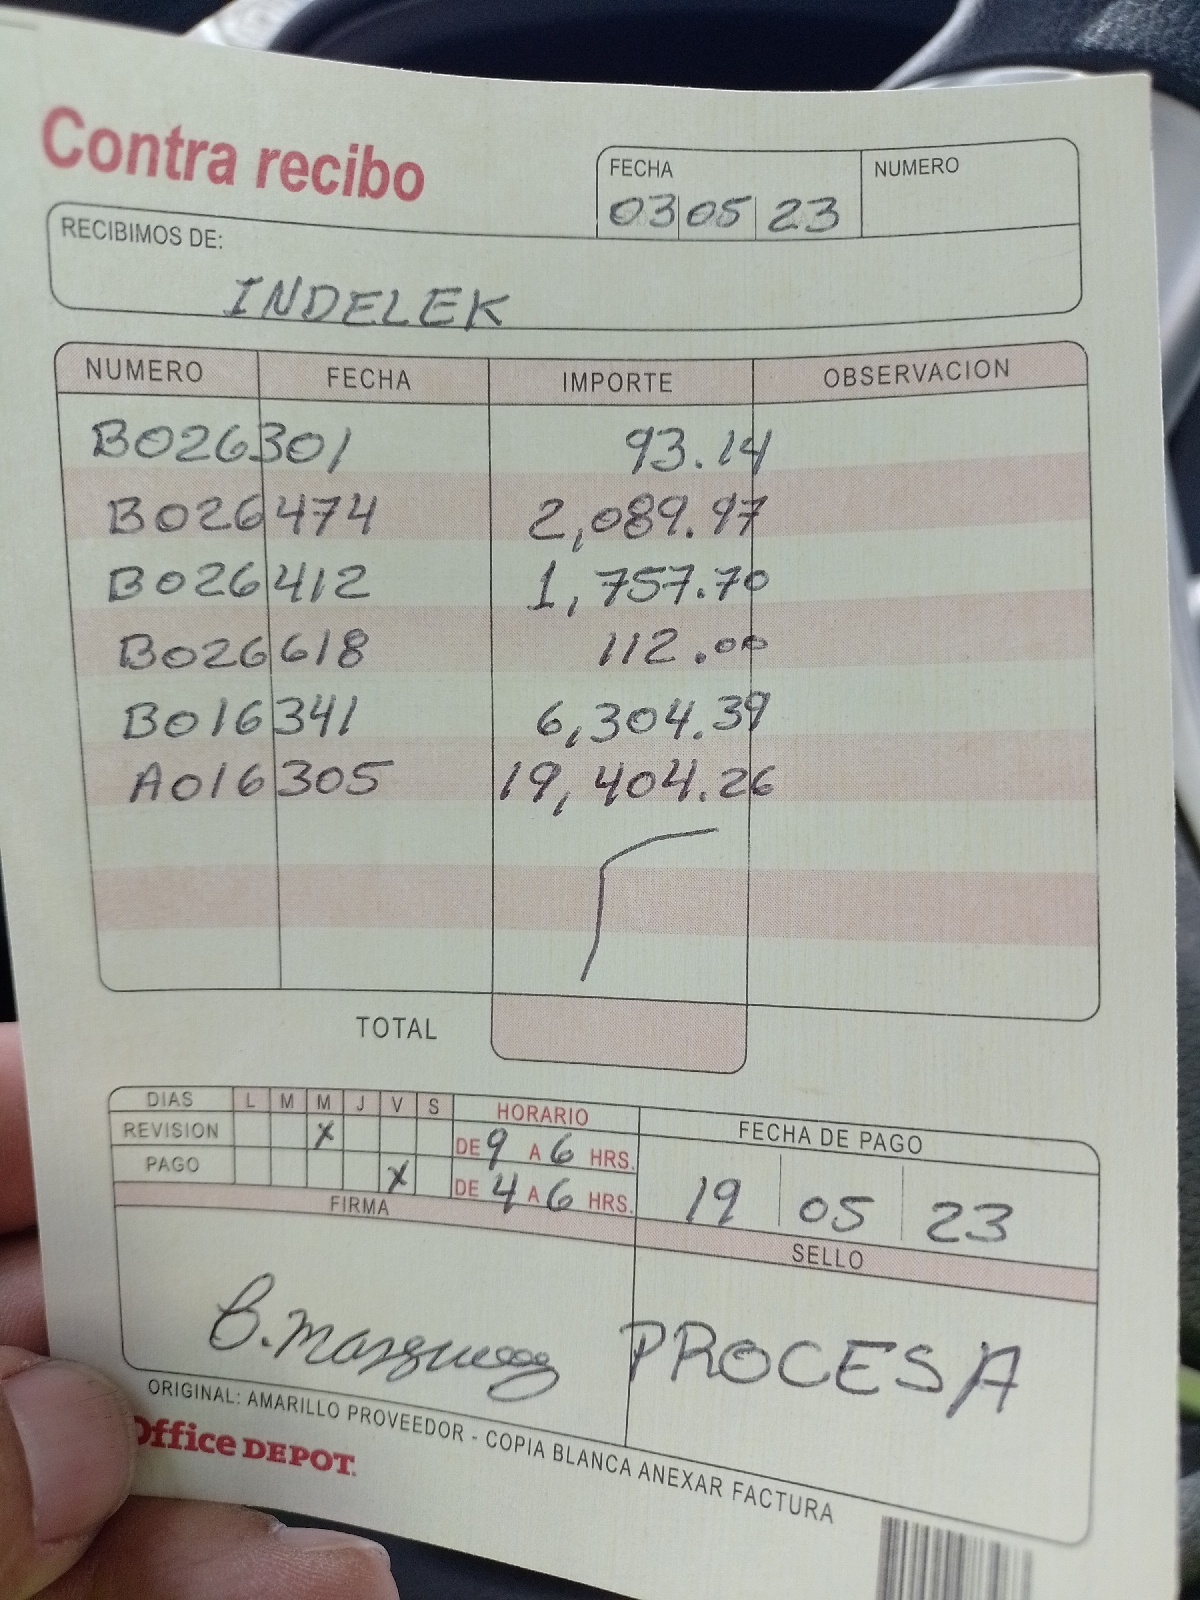 Contra recibo
FECHA
NUMERO
03 05 23
RECIBIMOS DE:
INDELEK
NUMERO FECHA IMPORTE OBSERVACION
B026301 93.14
B026474 2,089.97
B026412 1,757.70
B026618 112.00
B016341 6,304.39
A016305 19,404.26
TOTAL
DIAS L M M J V S HORARIO FECHA DE PAGO
REVISION X DE 9 A 6 HRS.
PAGO X DE 4 A 6 HRS. 19 05 23
FIRMA SELLO
B. Marquez PROCESA
ORIGINAL: AMARILLO PROVEEDOR - COPIA BLANCA ANEXAR FACTURA
Office DEPOT.